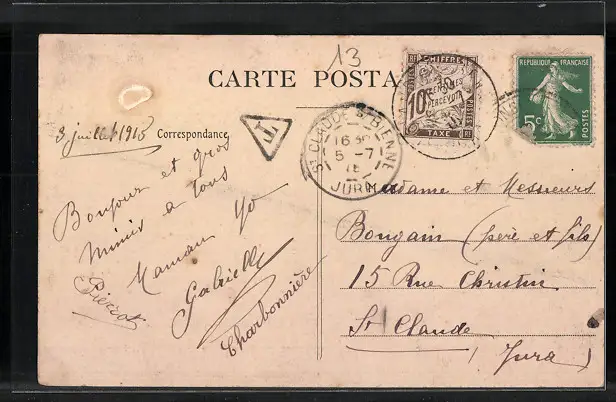 13
CARTE POSTA
CHIFFRE
10 CENTIMES
À PERCEVOIR
TAXE
RF
REPUBLIQUE FRANÇAISE
5c
POSTES
3 juillet 1915
Correspondance
T
ST CLAUDE S BIENNE
16
5 -7
15
JURA
Bonjour et gros
mimis a tous
Maman Yo
Gabrielle
Pierrot
Charbonnière
Madame et Messieurs
Bongain (père et fils)
15 Rue Christin
St Claude
(Jura)